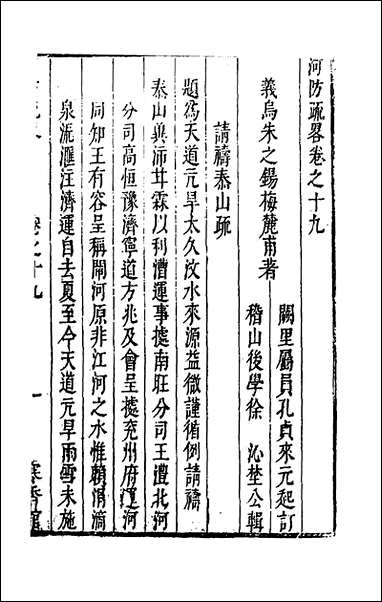 河防疏畧卷之十九
義烏朱之錫梅麓甫者
闕里屬員孔貞來元起訂
稽山後學徐 沁埜公輯
請禱泰山疏
題爲天道亢旱太久汶水來源益微謹循例請禱
泰山興沛甘霖以利漕運事據南旺分司王澧北河
分司高恒豫濟寧道方兆及會呈據兖州府運河
同知王有容呈稱閘河原非江河之水惟賴涓滴
泉流滙注濟運自去夏至今天道亢旱雨雪未施
卷之十九
一